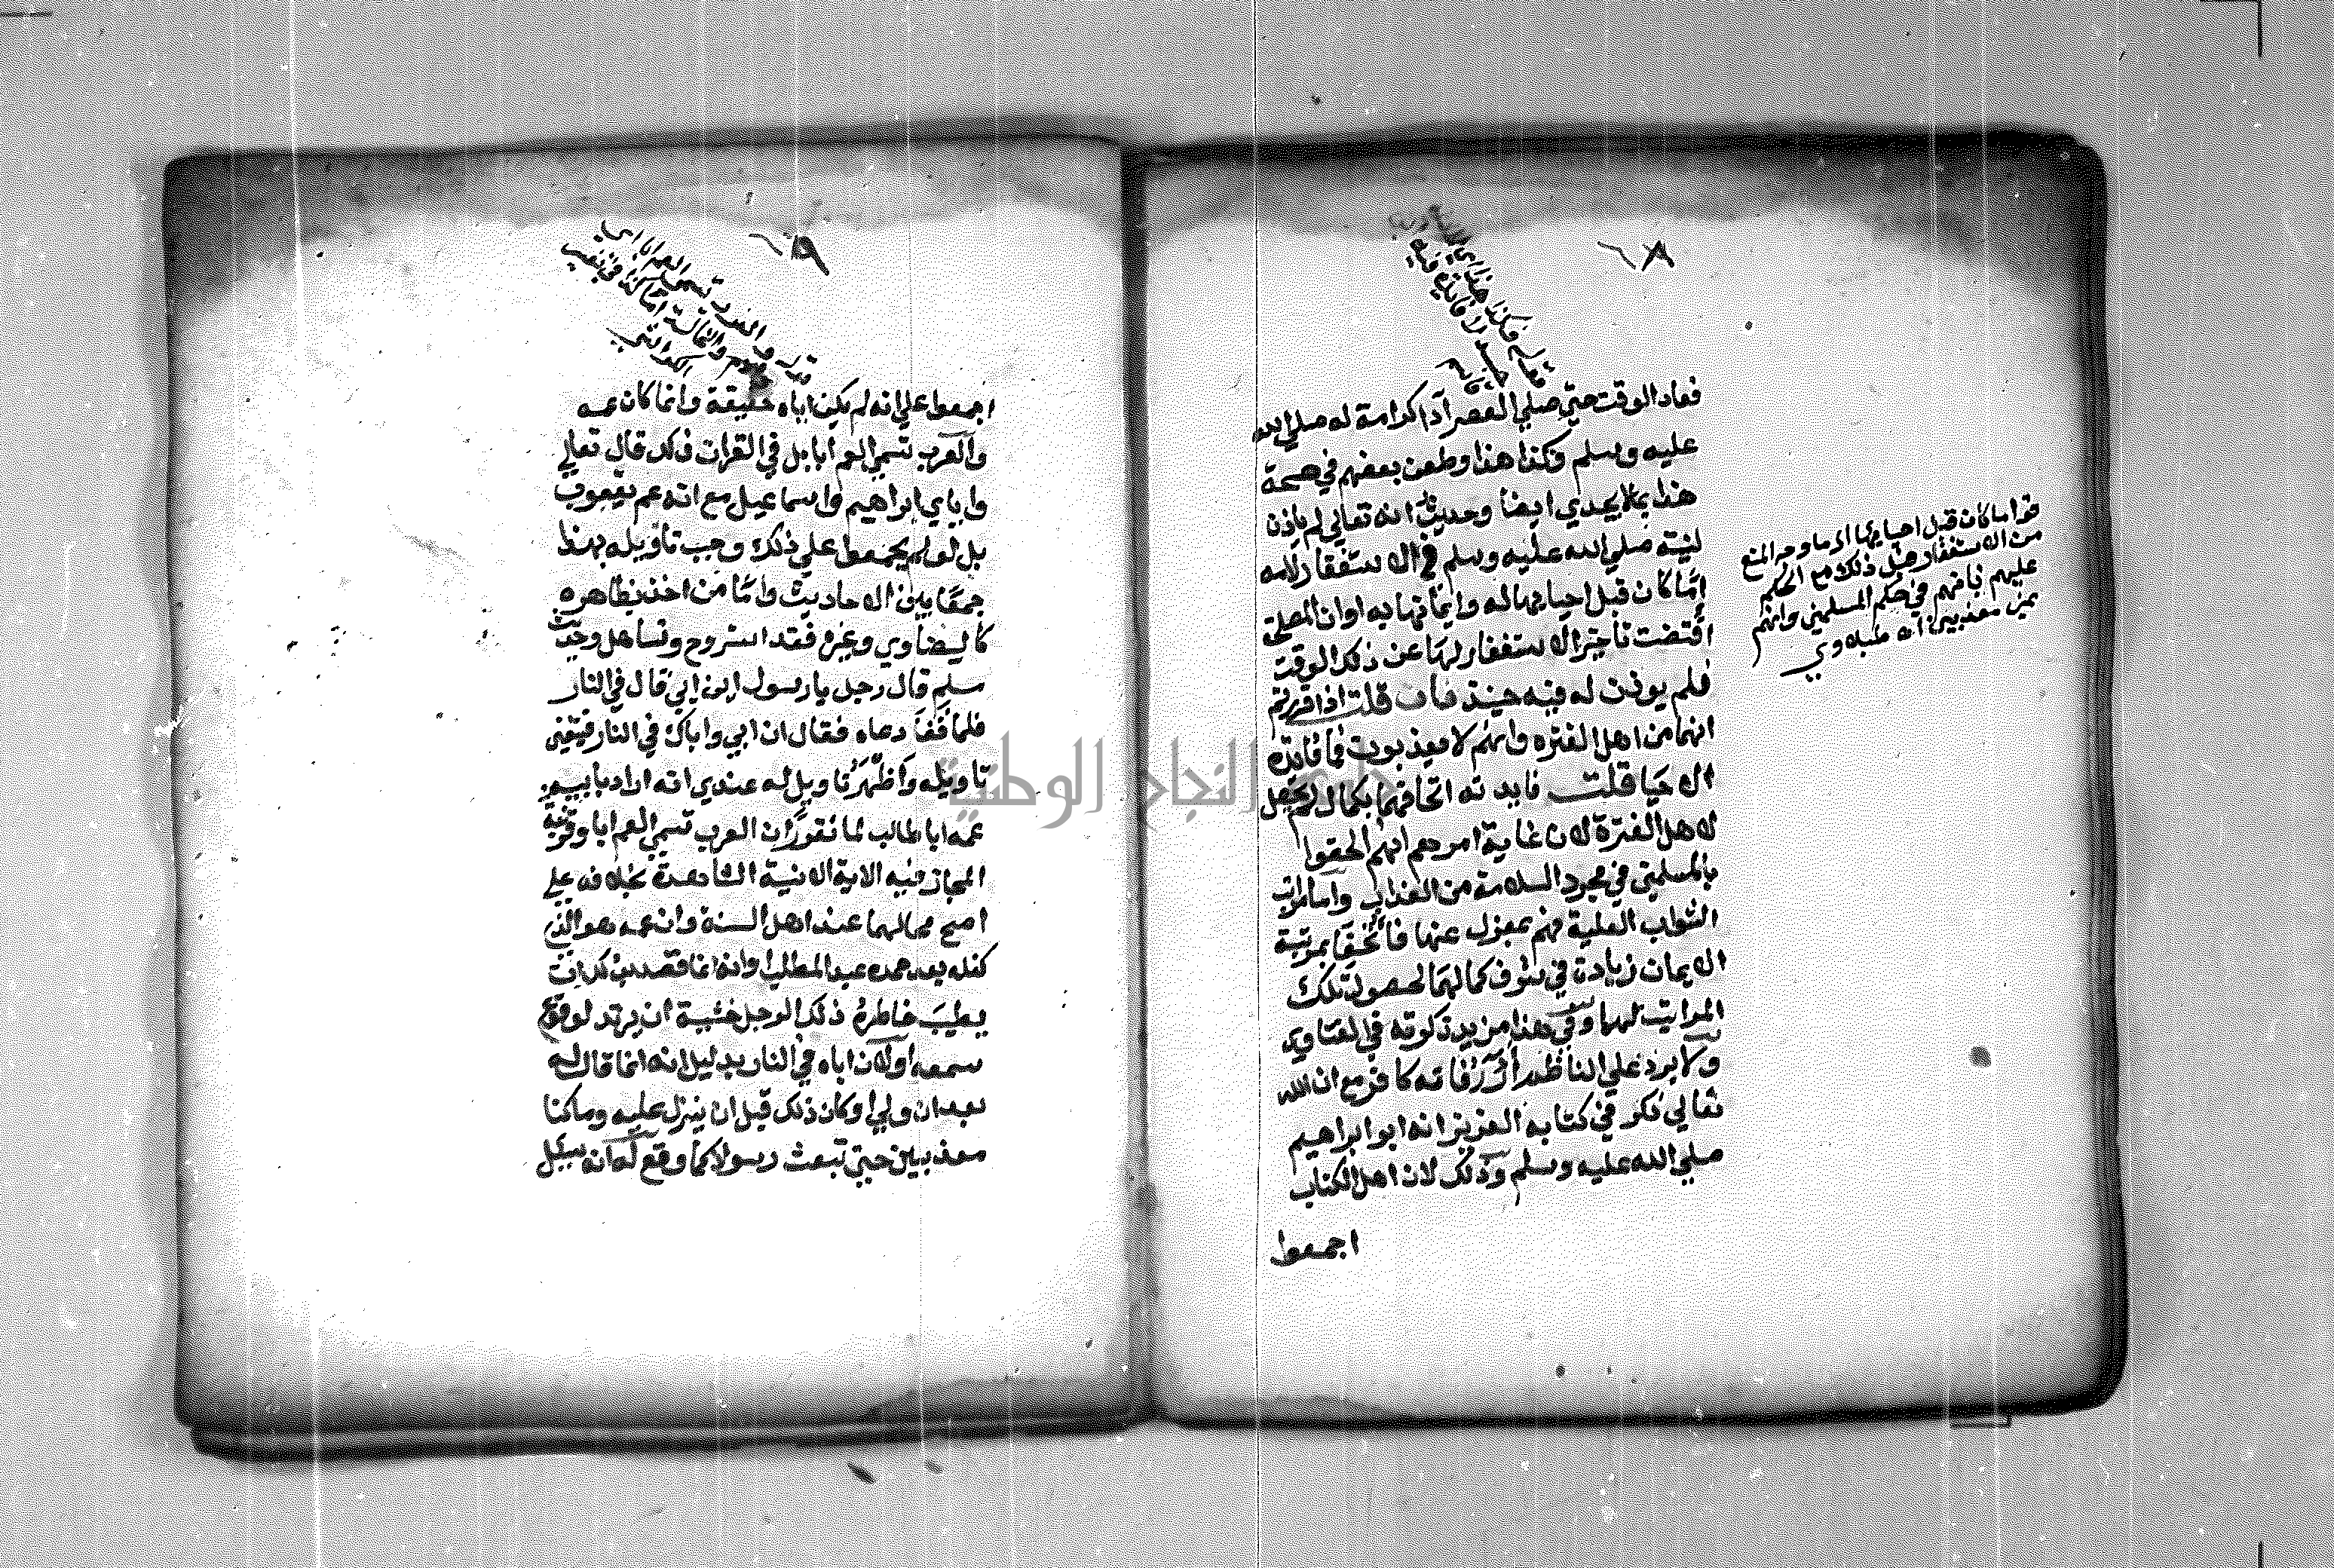 ٦٨
فعاد الوقت حتى صلى العصر أداكرامة له صلى الله
عليه وسلم فكذا هذا وطعن بعضهم في صحة
هذا بما لا يجدي ايضا وحديث انه تعالى لم ياذن
لنبيه صلى الله عليه وسلم في الاستغفار لامه
إمّا كان قبل احيايها له وايمانها به اوان المصلحة
اقتضت تاخير الاستغفار لها عن ذلك الوقت
فلم يوذن له فيه حينيذ فان قلت اذا قررتم
انهما من اهل الفترة وانهم لا يعذبون فما فايدة
الاحيا قلت فايدته اتحافهما بكمال لم يحصل
لاهل الفترة لان غاية امرهم انهم الحقوا
بالمسلمين في مجرد السلامة من العذاب واما مراتب
الثواب العلية فهم بمعزل عنها فأتحفا بمرتبة
الايمان زيادة في شرف كمالهما لحصول تلك
المراتب لهما وفي هذا مزيد ذكرته في الفتاوي
ولا يرد على الناظم آزر فانه كافر مع ان الله
تعالى ذكر في كتابه العزيز انه ابو ابراهيم
صلى الله عليه وسلم وذلك لان اهل الكتاب
اجمعوا
من الاستغفار مثل ذلك مع الحكم
عليهم بانهم في حكم المسلمين وانهم
٦٩
اجمعوا على انه لم يكن اباه حقيقة وانما كان عمه
والعرب تسمي العم ابا بل في القران ذلك قال تعالى
واباي ابراهيم واسماعيل مع انه عم يعقوب
بل لو لم يجمعوا على ذلك وجب تاويله بهذا
جمعًا بين الاحاديث وامّا من اخذ بظاهره
كالبيضاوي وغيره فقد استروح وتساهل وحديث
مسلم قال رجل يا رسول اين ابي قال في النار
فلما قفا دعاه فقال ان ابي واباك في النار فيتعين
تاويله وأظهر تاويل له عندي انه اراد بابيه
عمه ابا طالب لما تقرر ان العرب تسمي العم ابا وقرينة
المجاز فيه الاية الاتية الشاهدة بخلافه على
اصح محالهما عند اهل السنة وان عمه هو الذي
كفله بعد جده عبد المطلب وانه انما قصد بذلك ان
يطيب خاطر ذلك الرجل خشية ان يرتد لو قرع
سمعه اولا ان اباه في النار بدليل انه انما قال له
بعد ان ولي او كان ذلك قبل ان ينزل عليه وما كنا
معذبين حتى نبعث رسولا كما وقع له انه سيل